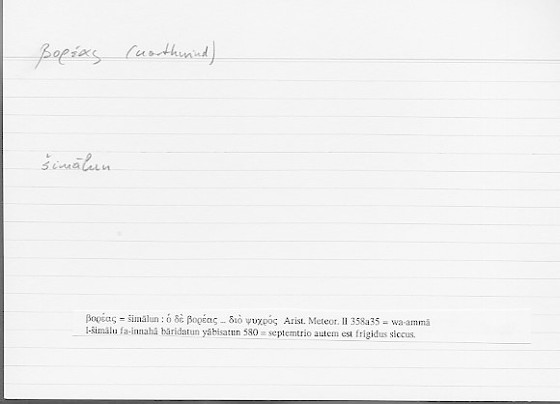 βορέας (northwind)
šimālun
βορέας = šimālun : ὁ δὲ βορέας ... διὸ ψυχρός Arist. Meteor. II 358a35 = wa-ammā
l-šimālu fa-innahā bāridatun yābisatun 580 = septemtrio autem est frigidus siccus.